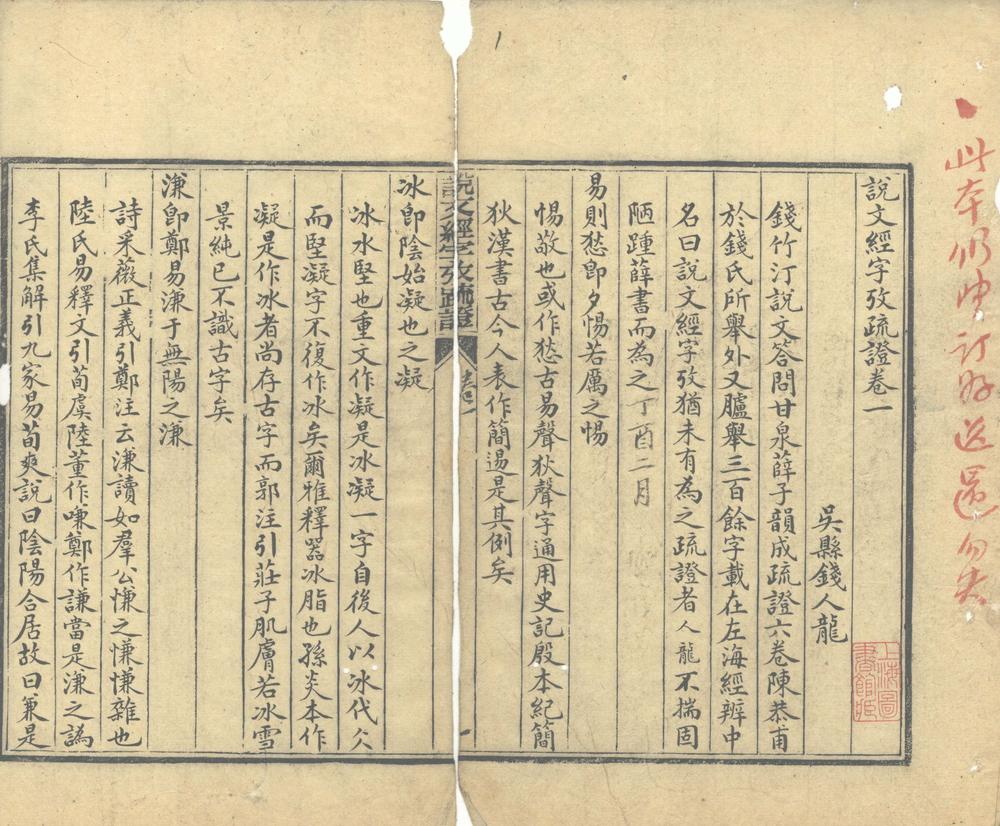 此本仍由訂好送還勿失
說文經字攷疏證卷一
吳縣錢人龍
錢竹汀說文答問甘泉薛子韻成疏證六卷陳恭甫
於錢氏所舉外又臚舉三百餘字載在左海經辨中
名曰說文經字攷猶未有為之疏證者人龍不揣固
陋踵薛書而為之丁酉二月
易則愁卽夕惕若厲之惕
惕敬也或作愁古易聲狄聲字通用史記殷本紀簡
狄漢書古今人表作簡逷是其例矣
說文經字攷疏證
卷一
一
冰卽陰始凝也之凝
冰水堅也重文作凝是冰凝一字自後人以冰代仌
而堅凝字不復作冰矣爾雅釋器冰脂也孫炎本作
凝是作冰者尚存古字而郭注引莊子肌膚若冰雪
景純已不識古字矣
溓卽鄭易溓于無陽之溓
詩采薇正義引鄭注云溓讀如羣公慊之慊慊雜也
陸氏易釋文引荀虞陸董作嗛鄭作謙當是溓之譌
李氏集解引九家易荀爽說曰陰陽合居故曰兼是
上海圖書館藏